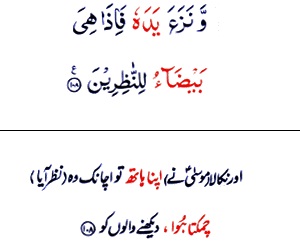 وَّ نَزَعَ يَدَهٗ فَاِذَا هِيَ
بَيْضَآءُ لِلنّٰظِرِيْنَ ۧ ﴿۱۰۸﴾
اور نکالا (موسیٰؑ نے) اپنا ہاتھ تو اچانک وہ (نظر آیا)
چمکتا ہُوا ، دیکھنے والوں کو ﴿۱۰۸﴾